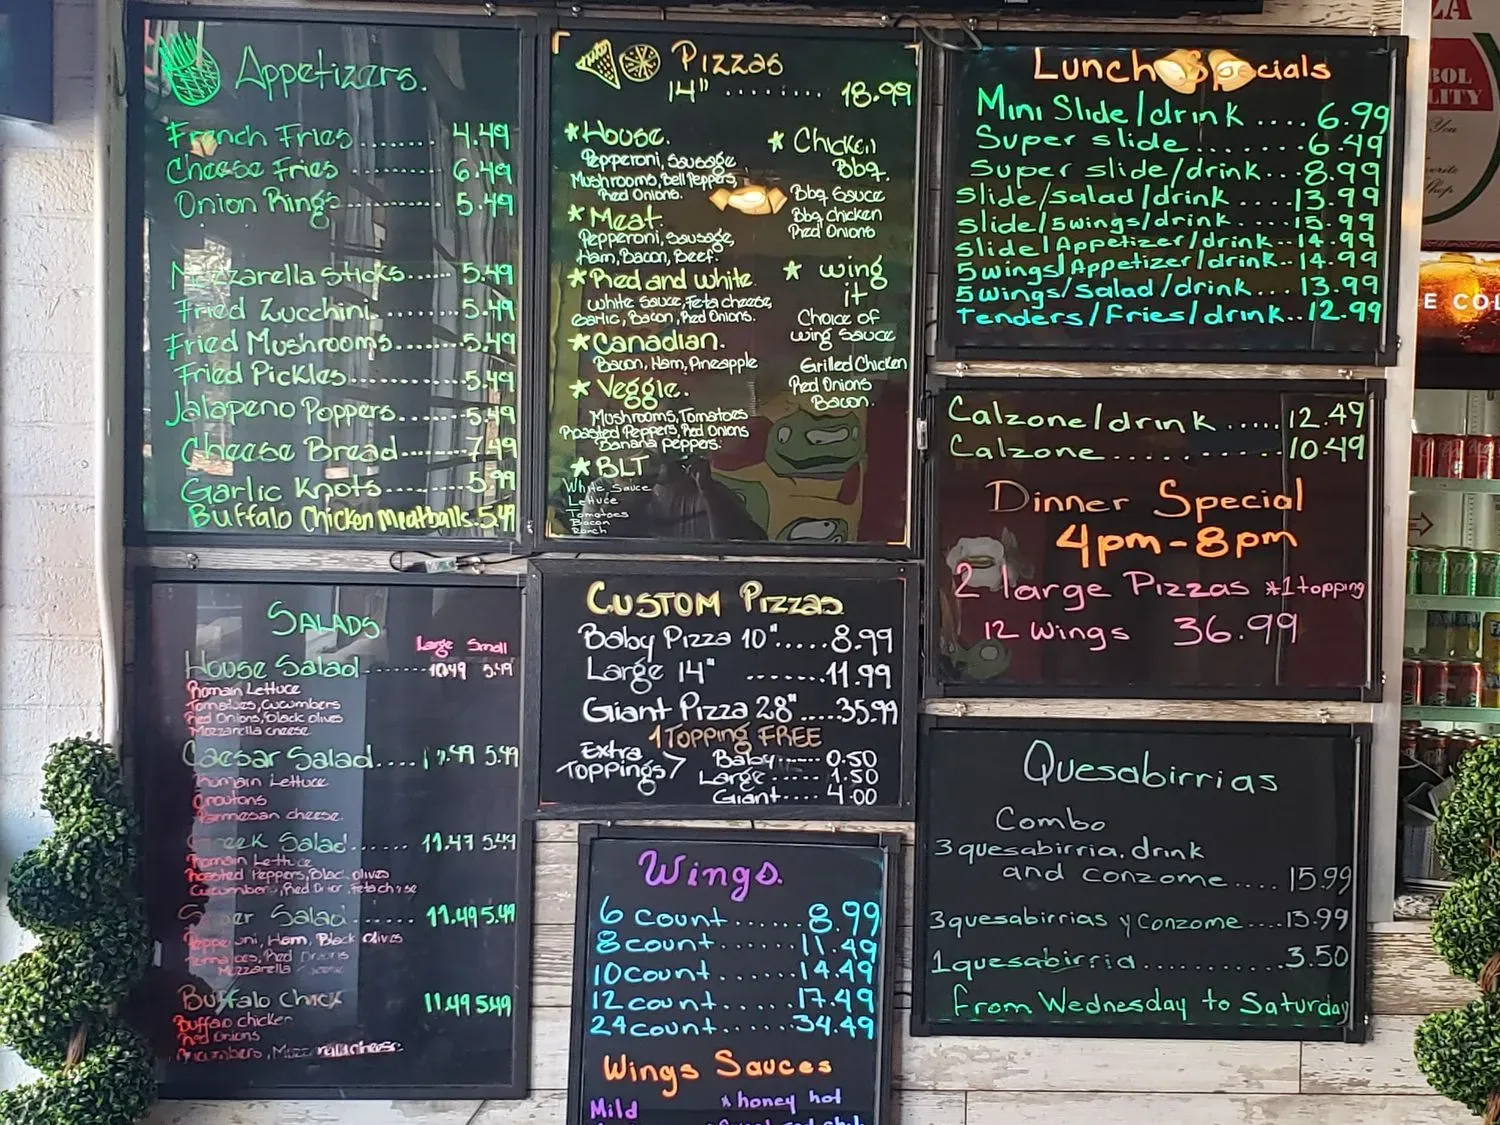 Appetizers.
French Fries........ 4.49
Cheese Fries .......... 6.49
Onion Rings......... 5.49
Mozzarella Sticks...... 5.49
Fried Zucchini......... 5.49
Fried Mushrooms...... 5.49
Fried Pickles.......... 5.49
Jalapeno Poppers....... 5.49
Cheese Bread....... 7.49
Garlic Knots......... 5.99
Buffalo Chicken Meatballs. 5.49
Pizzas
14" ........ 18.99
*House.
Pepperoni, Sausage
Mushrooms, Bell Peppers,
Red Onions.
*Meat.
Pepperoni, Sausage,
Ham, Bacon, Beef.
*Red and white.
White Sauce, Feta cheese,
Garlic, Bacon, Red Onions.
*Canadian.
Bacon, Ham, Pineapple
* Veggie.
Mushrooms, Tomatoes
Roasted Peppers, Red Onions
Banana peppers.
*BLT
White Sauce
Lettuce
Tomatoes
Bacon
Ranch
* Chicken
Bbq.
Bbq Sauce
Bbq chicken
Red Onions
* wing
it
Choice of
wing sauce
Grilled Chicken
Red Onions
Bacon.
Lunch Specials
Mini Slide/drink .... 6.99
Super slide....... 6.49
Super slide/drink... 8.99
Slide/salad/drink .... 13.99
slide/5wings/drink.... 15.99
slide/Appetizer/drink.. 14.99
5wings/Appetizer/drink.. 14.99
5wings/Salad/drink... 13.99
Tenders/Fries/drink.. 12.99
Calzone/drink ..... 12.49
Calzone.......... 10.49
Dinner Special
4pm-8pm
2 large Pizzas *1 topping
12 Wings 36.99
SALADS
Large Small
House Salad........ 10.49 5.49
Romain Lettuce
Tomatoes, Cucumbers
Red Onions, Black olives
Mozzarella cheese
Caesar Salad.... 11.49 5.49
Romain Lettuce
Croutons
Parmesan cheese.
Greek Salad...... 11.47 5.49
Romain Lettuce
Roasted Peppers, Black olives
Cucumbers, Red Onion, Feta cheese
Salad....... 11.49 5.49
Pepperoni, Ham, Black Olives
Tomatoes, Red Onions
Mozzarella
Buffalo Chick 11.49 5.49
Buffalo chicken
Red Onions
Cucumbers, Mozzarella cheese
CUSTOM Pizzas
Baby Pizza 10"..... 8.99
Large 14" ........ 11.99
Giant Pizza 28"..... 35.99
1 TOPPING FREE
Extra
TOPPINGS
Baby...... 0.50
Large...... 1.50
Giant.... 4.00
Wings.
6 count....... 8.99
8 count...... 11.49
10 count...... 14.49
12 count...... 17.49
24 count...... 34.49
Wings Sauces
Mild
*honey hot
Quesabirrias
Combo
3 quesabirria. drink
and conzome.... 15.99
3 quesabirrias y conzome.... 13.99
1 quesabirria............ 3.50
From Wednesday to Saturday
ZA
BOL
LITY
You
Shop
E CO